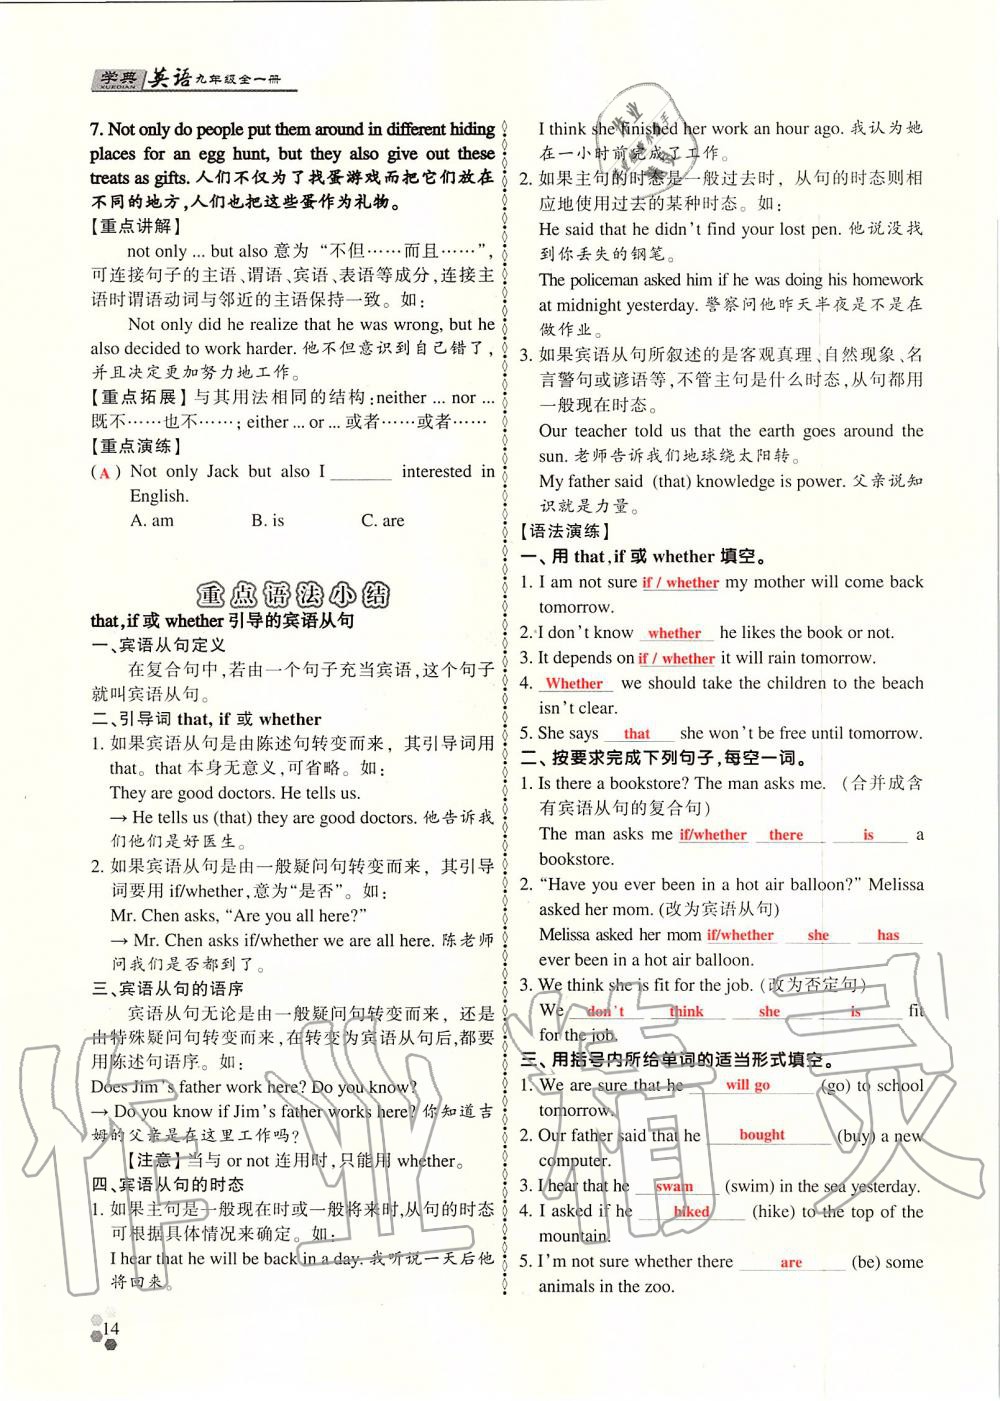 学典 XUEDIAN 英语 九年级全一册
7. Not only do people put them around in different hiding
places for an egg hunt, but they also give out these
treats as gifts. 人们不仅为了找蛋游戏而把它们放在
不同的地方,人们也把这些蛋作为礼物。
【重点讲解】
not only ... but also 意为“不但……而且……”,
可连接句子的主语、谓语、宾语、表语等成分,连接主
语时谓语动词与邻近的主语保持一致。如:
Not only did he realize that he was wrong, but he
also decided to work harder. 他不但意识到自己错了,
并且决定更加努力地工作。
【重点拓展】与其用法相同的结构:neither ... nor ...
既不……也不……; either ... or ... 或者……或者……
【重点演练】
( A ) Not only Jack but also I ______ interested in
English.
A. am B. is C. are
重点语法小结
that,if 或 whether 引导的宾语从句
一、宾语从句定义
在复合句中,若由一个句子充当宾语,这个句子
就叫宾语从句。
二、引导词 that, if 或 whether
1. 如果宾语从句是由陈述句转变而来，其引导词用
that。that 本身无意义,可省略。如:
They are good doctors. He tells us.
→ He tells us (that) they are good doctors. 他告诉我
们他们是好医生。
2. 如果宾语从句是由一般疑问句转变而来，其引导
词要用 if/whether,意为“是否”。如:
Mr. Chen asks, “Are you all here?”
→ Mr. Chen asks if/whether we are all here. 陈老师
问我们是否都到了。
三、宾语从句的语序
宾语从句无论是由一般疑问句转变而来，还是
由特殊疑问句转变而来,在转变为宾语从句后,都要
用陈述句语序。如:
Does Jim's father work here? Do you know?
→ Do you know if Jim's father works here? 你知道吉
姆的父亲是在这里工作吗?
【注意】当与 or not 连用时,只能用 whether。
四、宾语从句的时态
1. 如果主句是一般现在时或一般将来时,从句的时态
可根据具体情况来确定。如:
I hear that he will be back in a day. 我听说一天后他
将回来。
14
I think she finished her work an hour ago. 我认为她
在一小时前完成了工作。
2. 如果主句的时态是一般过去时，从句的时态则相
应地使用过去的某种时态。如:
He said that he didn't find your lost pen. 他说没找
到你丢失的钢笔。
The policeman asked him if he was doing his homework
at midnight yesterday. 警察问他昨天半夜是不是在
做作业。
3. 如果宾语从句所叙述的是客观真理、自然现象、名
言警句或谚语等,不管主句是什么时态,从句都用
一般现在时态。
Our teacher told us that the earth goes around the
sun. 老师告诉我们地球绕太阳转。
My father said (that) knowledge is power. 父亲说知
识就是力量。
【语法演练】
一、用 that,if 或 whether 填空。
1. I am not sure if / whether my mother will come back
tomorrow.
2. I don't know whether he likes the book or not.
3. It depends on if / whether it will rain tomorrow.
4. Whether we should take the children to the beach
isn't clear.
5. She says that she won't be free until tomorrow.
二、按要求完成下列句子,每空一词。
1. Is there a bookstore? The man asks me. (合并成含
有宾语从句的复合句)
The man asks me if/whether there is a
bookstore.
2. “Have you ever been in a hot air balloon?” Melissa
asked her mom. (改为宾语从句)
Melissa asked her mom if/whether she has
ever been in a hot air balloon.
3. We think she is fit for the job. (改为否定句)
We don't think she is fit
for the job.
三、用括号内所给单词的适当形式填空。
1. We are sure that he will go (go) to school
tomorrow.
2. Our father said that he bought (buy) a new
computer.
3. I hear that he swam (swim) in the sea yesterday.
4. I asked if he hiked (hike) to the top of the
mountain.
5. I'm not sure whether there are (be) some
animals in the zoo.
作业精灵